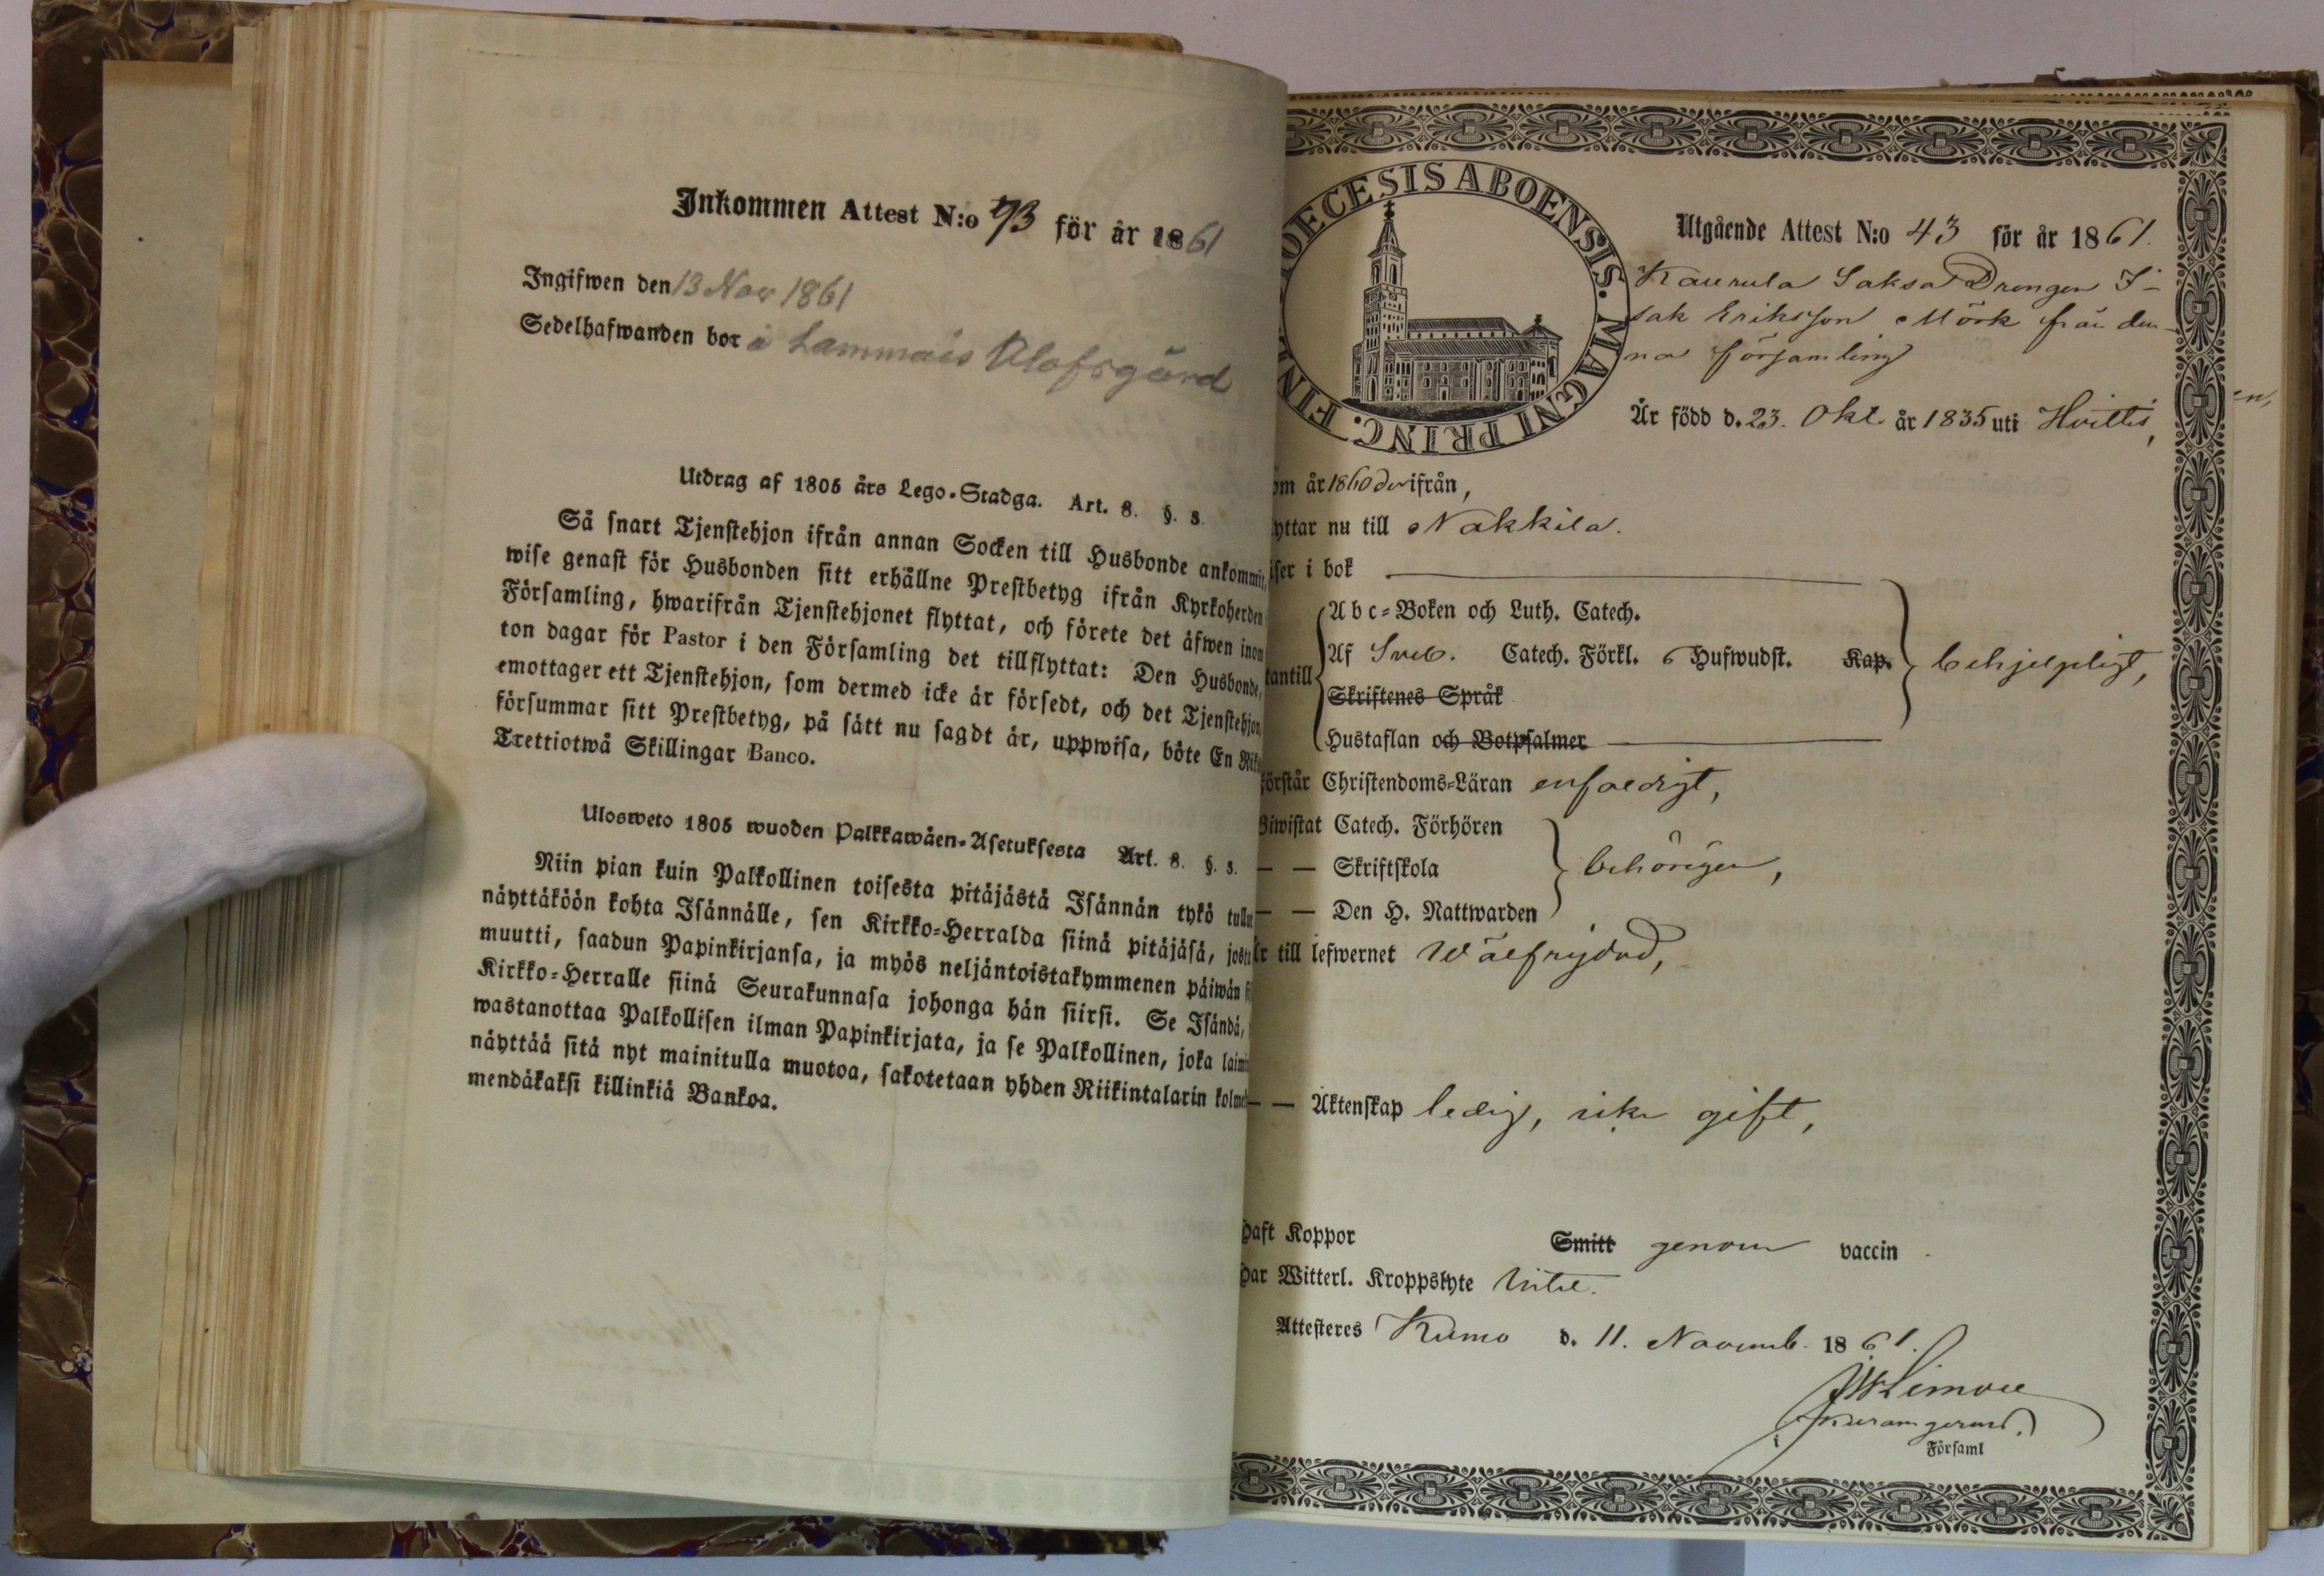 Inkommen Attest N:o 93 för år 1861
Ingifwen den 13 Nov 1861
Sedelhafwanden bor i Lammais Olofsgård
Utdrag af 1805 års Lego-Stadga. Art. 8. §. 8.
Så snart Tjenstehjon ifrån annan Socken till Husbonde ankommit,
wise genast för Husbonden sitt erhållne Prestbetyg ifrån Kyrkoherden
Församling, hwarifrån Tjenstehjonet flyttat, och förete det äfwen inom
ton dagar för Pastor i den Församling det tillflyttat: Den Husbonde,
emottager ett Tjenstehjon, som dermed icke är försedt, och det Tjenstehjon,
försummar sitt Prestbetyg, på sätt nu sagdt är, uppwisa, böte En Riks
Trettiotwå Skillingar Banco.
Ulosweto 1805 wuoden Palkkawäen-Asetuksesta Art. 8. §. 8.
Niin pian kuin Palkollinen toisesta pitäjästä Isännän tykö tullu
näyttäköön kohta Isännälle, sen Kirkko-Herralda siinä pitäjäsä, josta
muutti, saadun Papinkirjansa, ja myös neljäntoistakymmenen päiwän si
Kirkko-Herralle siinä Seurakunnasa johonga hän siirsi. Se Isändä,
wastanottaa Palkollisen ilman Papinkirjata, ja se Palkollinen, joka laimi
näyttää sitä nyt mainitulla muotoa, sakotetaan yhden Riikintalarin kolme
mendäkaksi killinkiä Bankoa.
DIOECESIS ABOENSIS. MAGNI PRINC. FIN
Utgående Attest N:o 43 för år 1861.
Kaurula Saksa Drengen I-
sak Eriksson Mörk från den-
na församling
Är född d. 23. Okt. år 1835 uti Hvittis,
om år 1860 derifrån,
yttar nu till Nakkila.
iser i bok
Abc-Boken och Luth. Catech.
Af Sveb. Catech. Förkl. 6 Hufwudst. Kap.
behjelpligt,
tantill
Skriftenes Språk
Hustaflan och Botpsalmer
Förstår Christendoms-Läran enfaldigt,
Biwistat Catech. Förhören
— — Skriftskola
behörigen,
— — Den H. Nattwarden
Är till lefwernet Wälfrejdad,
— — Äktenskap ledig, icke gift,
Haft Koppor Smitt genom vaccin.
Har Witterl. Kroppslyte Intet.
Attesteres Kumo d. 11. Novemb. 1861.
i
Församl